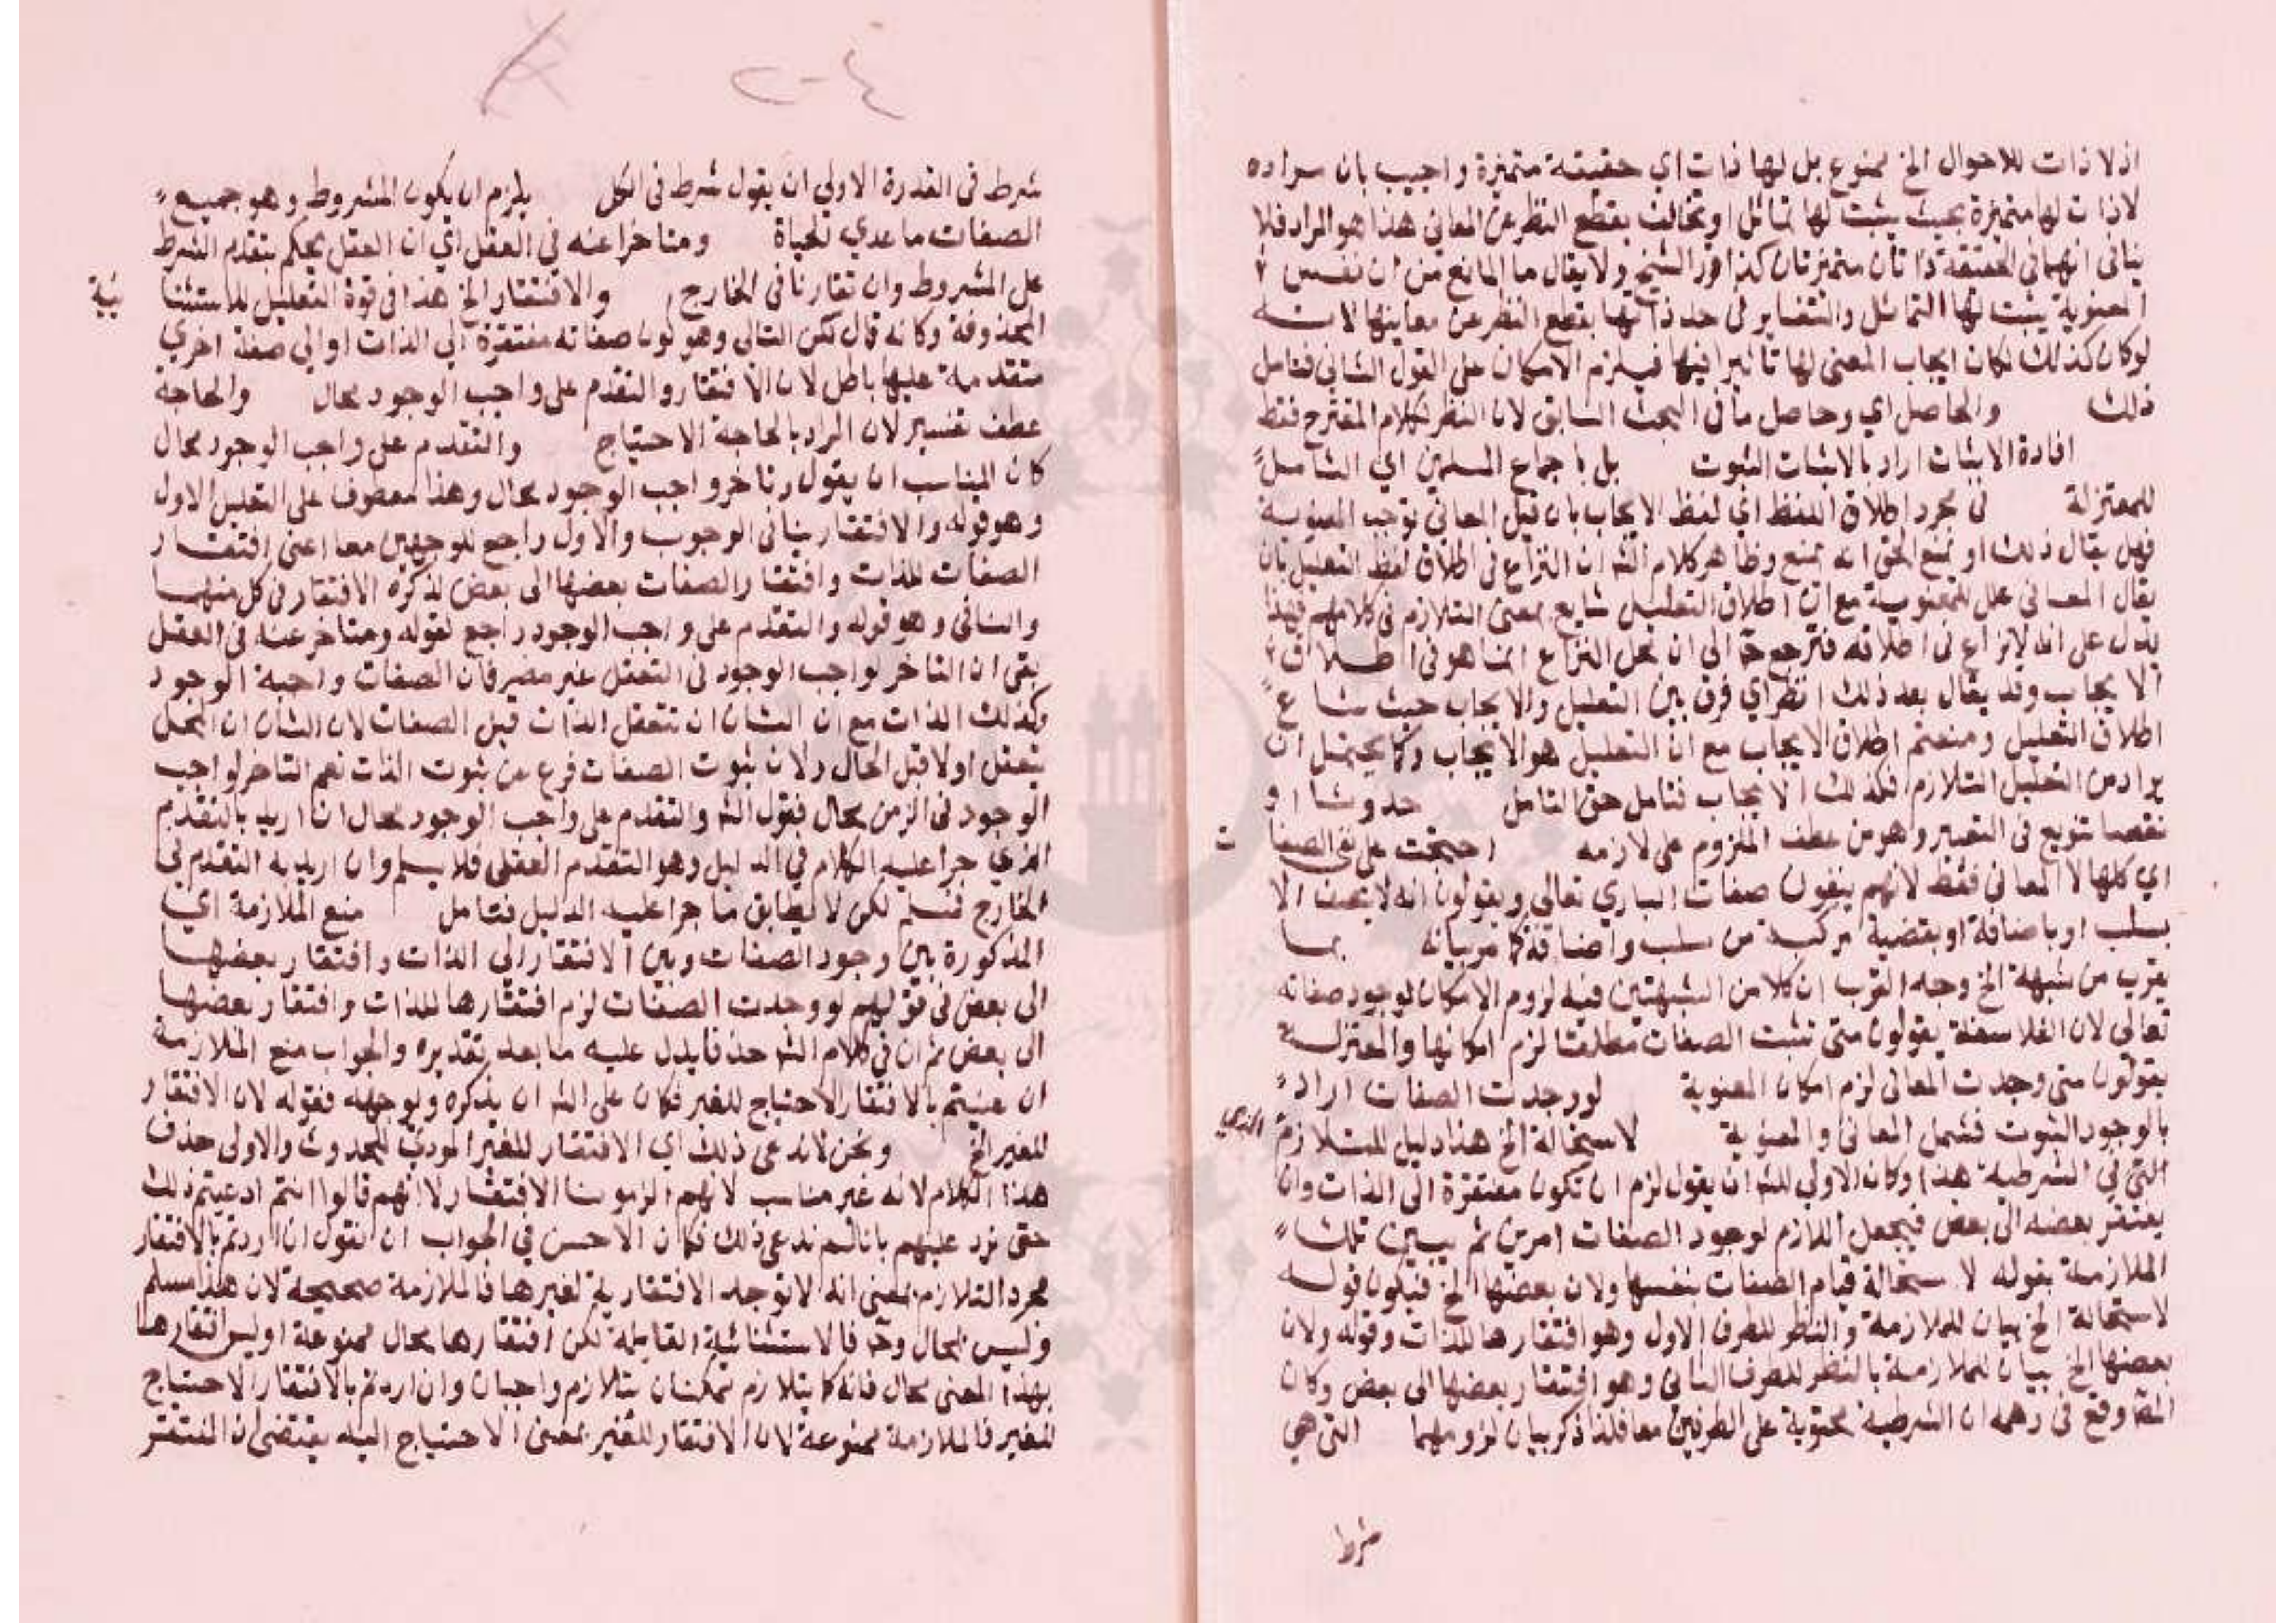 اذ لا ذات للاحوال الخ ممنوع بل لها ذات اي حقيقة متميزة واجيب بان مراده
لا ذات لها متميزة بحيث يثبت لها تماثل او تخالف بقطع النظر عن المعاني هذا هو المراد فلا
ينافي انهما في الحقيقة ذاتان متميزتان كذا قرر الشيخ ولا يقال ما المانع من ان نفس
المعنوية يثبت لها التماثل والتغاير في حد ذاتها بقطع النظر عن معانيها لانه
لو كان كذلك لكان ايجاب المعنى لها تاثيرا فيها فيلزم الامكان على القول الثاني فتامل
ذلك والحاصل اي وحاصل ما في البحث السابق لان النظر لكلام المقترح فقط
افادة الاثبات اراد بالاثبات الثبوت بل باجماع المسلمين اي الشامل
للمعتزلة في مجرد اطلاق اللفظ اي لفظ الايجاب بان قيل المعاني توجب المعنوية
فهل يقال ذلك او يمنع الحق انه يمنع وظاهر كلام الش ان النزاع في اطلاق لفظ التعليل بان
يقال المعاني علل للمعنوية مع ان اطلاق التعليل شايع بمعنى التلازم في كلامهم فهذا
يدل على انه لا نزاع في اطلاقه فترجع ح الى ان محل النزاع انما هو في اطلاق
الايجاب وقد يقال بعد ذلك انظر اي فرق بين التعليل والايجاب حيث شاع
اطلاق التعليل ومنعتم اطلاق الايجاب مع ان التعليل هو الايجاب وكما يحتمل ان
يراد من التعليل التلازم فكذلك الايجاب فتامل حق التامل حدوثا او
نقصا تنويع في التعبير وهو من عطف الملزوم على لازمه احتجت على نفي الصفات
اي كلها لا المعاني فقط لانهم ينفون صفات الباري تعالى ويقولون انه لا يتصف الا
بسلب او باضافة او بقضية مركبة من سلب واضافة كما مر بيانه بما
يقرب من شبهة الخ وجه القرب ان كلا من الشبهتين فيه لزوم الامكان لوجود صفاته
تعالى لان الفلاسفة يقولون متى تثبت الصفات مطلقا لزم امكانها والمعتزلة
يقولون متى وجدت المعاني لزم امكان المعنوية لو وجدت الصفات اراد
بالوجود الثبوت فشمل المعاني والمعنوية لاستحالة الخ هذا دليل للتلازم
التي في الشرطية هذا وكان الاولي للش ان يقول لزم ان تكون مفتقرة الى الذات وان
يفتقر بعضه الى بعض فيجعل اللازم لوجود الصفات امرين ثم يبين تلك
الملازمة بقوله لاستحالة قيام الصفات بنفسها ولان بعضها الخ فيكون قوله
لاستحالة الخ بيان للملازمة والنظر للطرف الاول وهو افتقارها للذات وقوله ولان
بعضها الخ بيان للملازمة بالنظر للطرف الثاني وهو افتقار بعضها الى بعض وكان
الش وقع في وهمه ان الشرطية محتوية على الطرفين معا فلذا ذكر بيان لزومهما التي هي
شرط
شرط في القدرة الاولي ان يقول شرط في الكل يلزم ان يكون المشروط وهو جميع
الصفات ما عدي الحياة ومتاخرا عنه في العقل اي ان العقل يحكم بتقدم الشرط
على المشروط وان تقارنا في الخارج والافتقار الخ هذا في قوة التعليل للاستثنا ئية
المحذوفة وكانه قال لكن التالي وهو كون صفاته مفتقرة الي الذات او الي صفة اخري
متقدمة عليها باطل لان الافتقار والتقدم على واجب الوجود محال والحاجة
عطف تفسير لان المراد بالحاجة الاحتياج والتقدم على واجب الوجود محال
كان المناسب ان يقول وتاخر واجب الوجود محال وهذا معطوف على التعليل الاول
وهو قوله والافتقار ينافي الوجوب والاول راجع للوجهين معا اعني افتقار
الصفات للذات وافتقار الصفات بعضها الى بعض لذكره الافتقار في كل منهما
والثاني وهو قوله والتقدم على واجب الوجود راجع لقوله ومتاخر عنه في العقل
بقي ان التاخر لواجب الوجود في التعقل غير مضر فان الصفات واجبة الوجود
وكذلك الذات مع ان الشان ان تتعقل الذات قبل الصفات لان الشان ان المحل
يتعقل اولا قبل الحال ولان ثبوت الصفات فرع من ثبوت الذات نعم التاخر لواجب
الوجود في الزمن محال فقول الش والتقدم على واجب الوجود محال ان اريد بالتقدم
الذي جرا عليه الكلام في الدليل وهو التقدم العقلي فلا يسلم وان اريد به التقدم في
الخارج فسلم لكن لا يطابق ما جرا عليه الدليل فتامل منع الملازمة اي
المذكورة بين وجود الصفات وبين الافتقار الي الذات وافتقار بعضها
الى بعض في قولهم لو وجدت الصفات لزم افتقارها للذات وافتقار بعضها
الى بعض ثم ان في كلام الش حذفا يدل عليه ما بعد تقديره والجواب منع الملازمة
ان عنيتم بالافتقار الاحتياج للغير فكان على الش ان يذكره ويوجهه فقوله لان الافتقار
للغير الخ ونحن لا ندعي ذلك اي الافتقار للغير المودي للحدوث والاولى حذف
هذا الكلام لانه غير مناسب لانهم الزمونا الافتقار لا انهم قالوا انتم ادعيتم ذلك
حتى نرد عليهم بانا لم ندعي ذلك فكان الاحسن في الجواب ان نقول ان اردتم بالافتقار
مجرد التلازم بمعنى انه لا توجد الافتقارية لغيرها فالملازمة صحيحة لان هذا مسلم
وليس بمحال وح فالاستثنائية القايلة لكن افتقارها محال ممنوعة اوليس افتقارها
بهذا المعنى محال فانه كما يتلازم ممكنان يتلازم واجبان وان اردتم بالافتقار الاحتياج
للغير فالملازمة ممنوعة لان الافتقار للغير بمعنى الاحتياج اليه يقتضي ان المفتقر